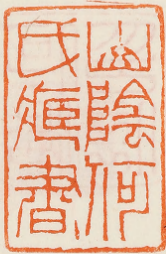 山陰何
氏書